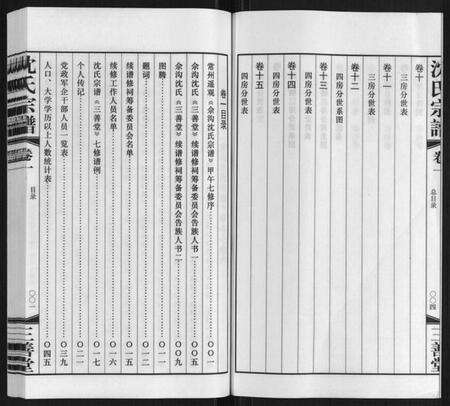 沈氏宗譜
卷一
总目录
〇〇四
三善堂
卷十
三房分世表
卷十一
三房分世表
卷十二
四房分世系图
四房分世表
卷十三
四房分世表
卷十四
四房分世表
卷十五
四房分世表
卷一目录
常州遥观《余沟沈氏宗谱》甲午七修序……〇〇一
余沟沈氏《三善堂》续谱修祠筹备委员会告族人书一……〇〇五
余沟沈氏《三善堂》续谱修祠筹备委员会告族人书二……〇〇九
图腾……〇一一
题词……〇一二
续谱修祠筹备委员会名单……〇一五
续修工作人员名单……〇一六
沈氏宗谱《三善堂》七修谱例……〇一七
个人传记……〇二一
党政军企干部人员一览表……〇三九
人口、大学学历以上人数统计表……〇四五
沈氏宗譜
卷一
目录
〇〇一
三善堂